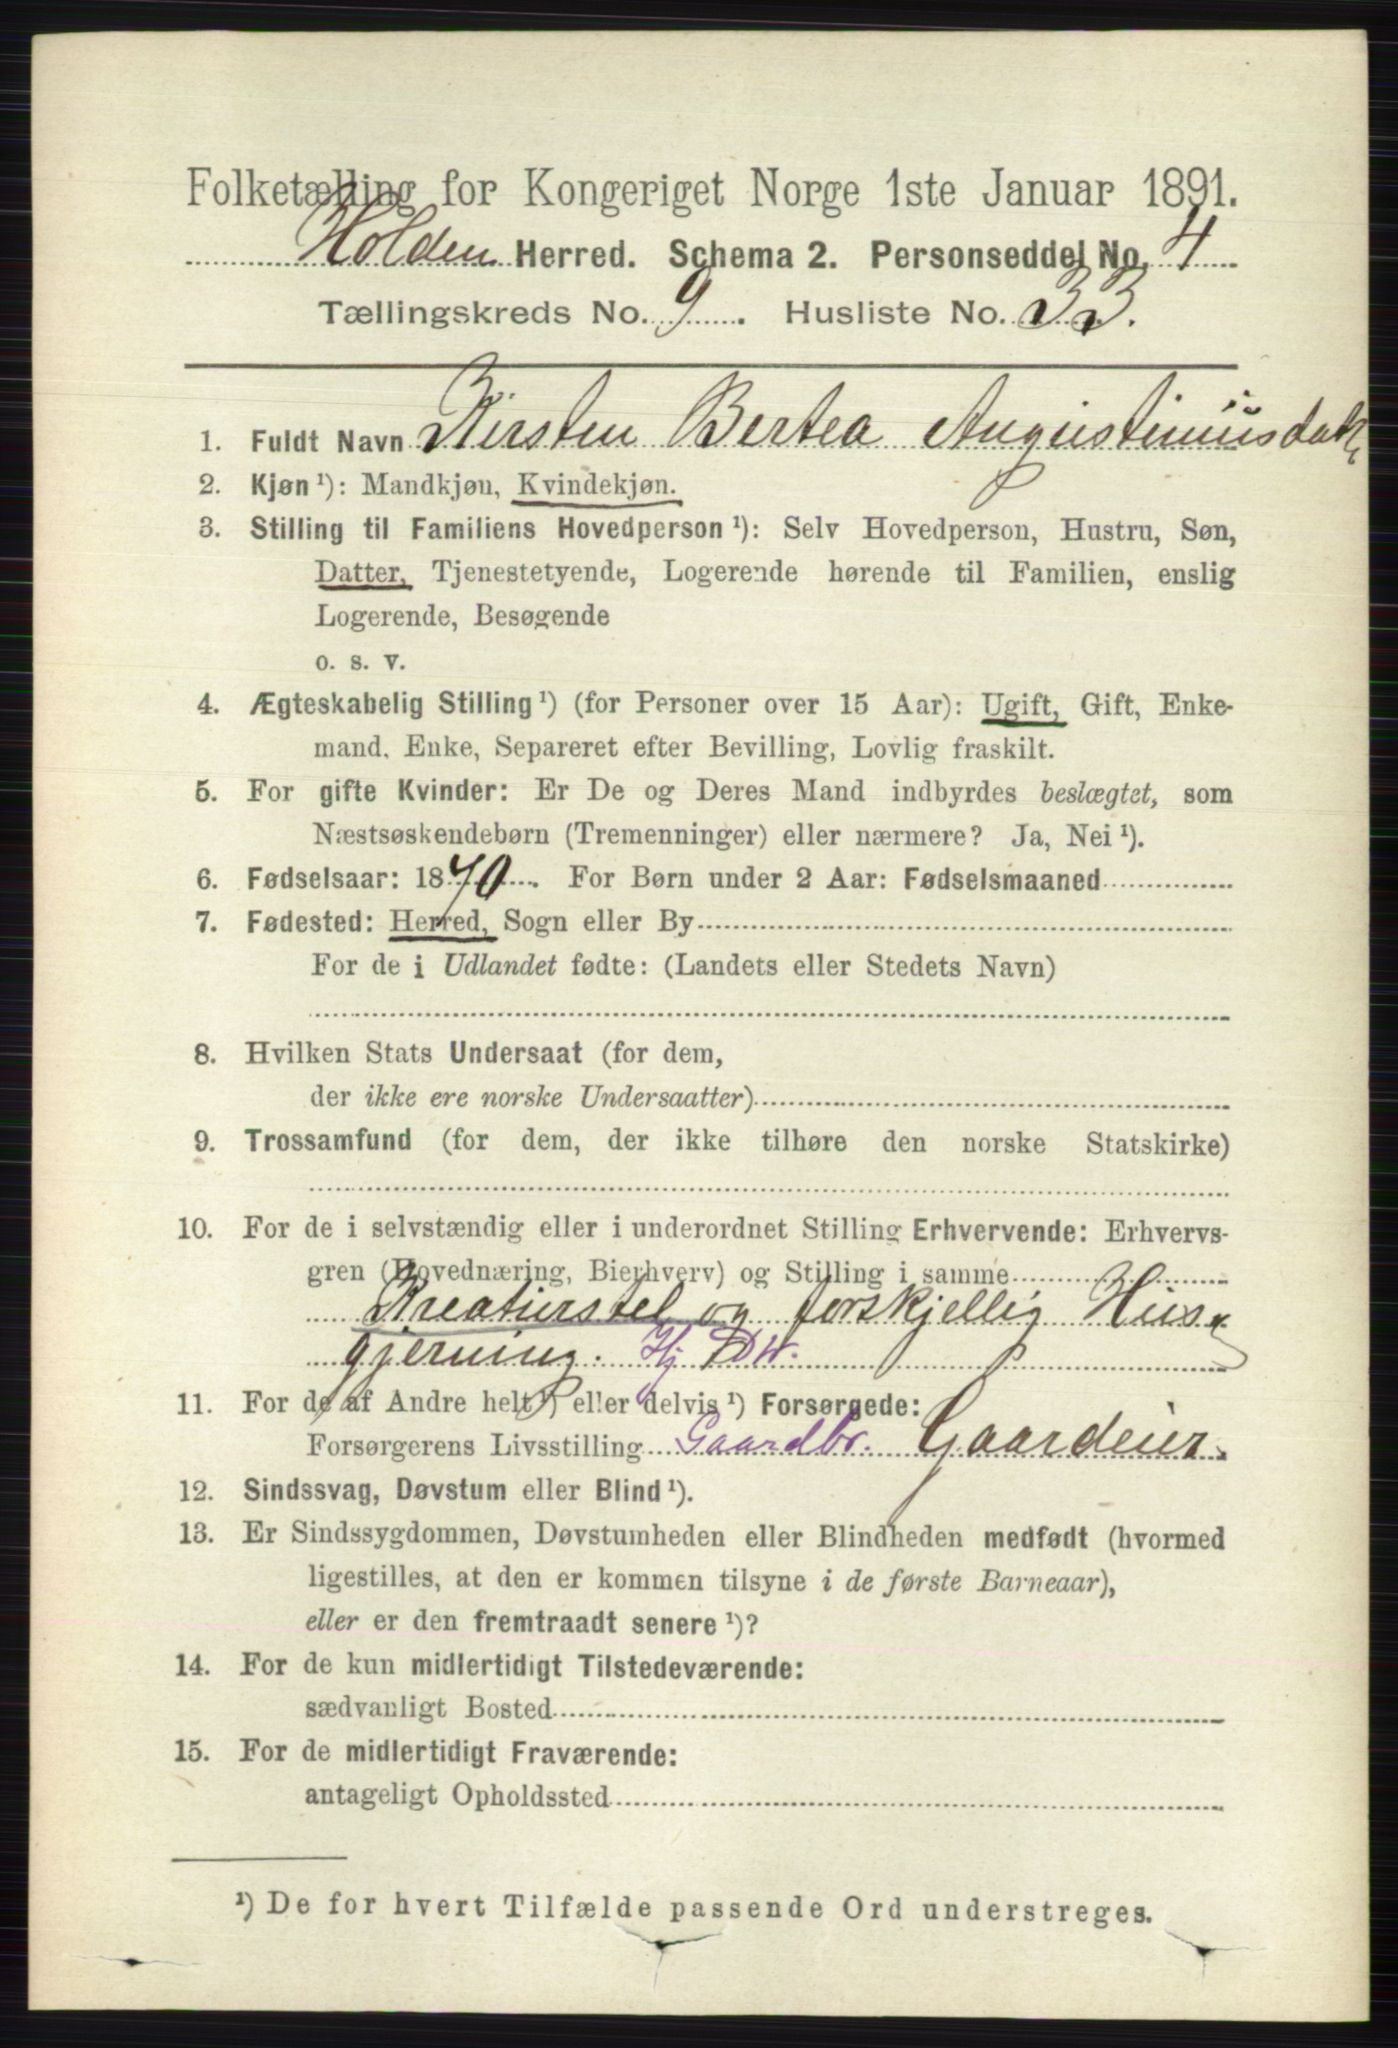 Folketælling for Kongeriget Norge 1ste Januar 1891.
Holden Herred. Schema 2. Personseddel No. 4
Tællingskreds No. 9. Husliste No. 33.
1. Fuldt Navn Kirsten Bertea Augustinusdatr
2. Kjøn ¹): Mandkjøn, Kvindekjøn.
3. Stilling til Familiens Hovedperson ¹): Selv Hovedperson, Hustru, Søn,
Datter, Tjenestetyende, Logerende hørende til Familien, enslig
Logerende, Besøgende
o. s. v.
4. Ægteskabelig Stilling ¹) (for Personer over 15 Aar): Ugift, Gift, Enke-
mand, Enke, Separeret efter Bevilling, Lovlig fraskilt.
5. For gifte Kvinder: Er De og Deres Mand indbyrdes beslægtet, som
Næstsøskendebørn (Tremenninger) eller nærmere? Ja, Nei ¹).
6. Fødselsaar: 1870. For Børn under 2 Aar: Fødselsmaaned
7. Fødested: Herred, Sogn eller By
For de i Udlandet fødte: (Landets eller Stedets Navn)
8. Hvilken Stats Undersaat (for dem,
der ikke ere norske Undersaatter)
9. Trossamfund (for dem, der ikke tilhøre den norske Statskirke)
10. For de i selvstændig eller i underordnet Stilling Erhvervende: Erhvervs-
gren (Hovednæring, Bierhverv) og Stilling i samme
Kreaturstel og forskjellig Hus-
gjerning. Hj Dw.
11. For de af Andre helt ¹) eller delvis ¹) Forsørgede:
Forsørgerens Livsstilling Gaardbr. Gaardeier.
12. Sindssvag, Døvstum eller Blind ¹).
13. Er Sindssygdommen, Døvstumheden eller Blindheden medfødt (hvormed
ligestilles, at den er kommen tilsyne i de første Barneaar),
eller er den fremtraadt senere ¹)?
14. For de kun midlertidigt Tilstedeværende:
sædvanligt Bosted
15. For de midlertidigt Fraværende:
antageligt Opholdssted
¹) De for hvert Tilfælde passende Ord understreges.